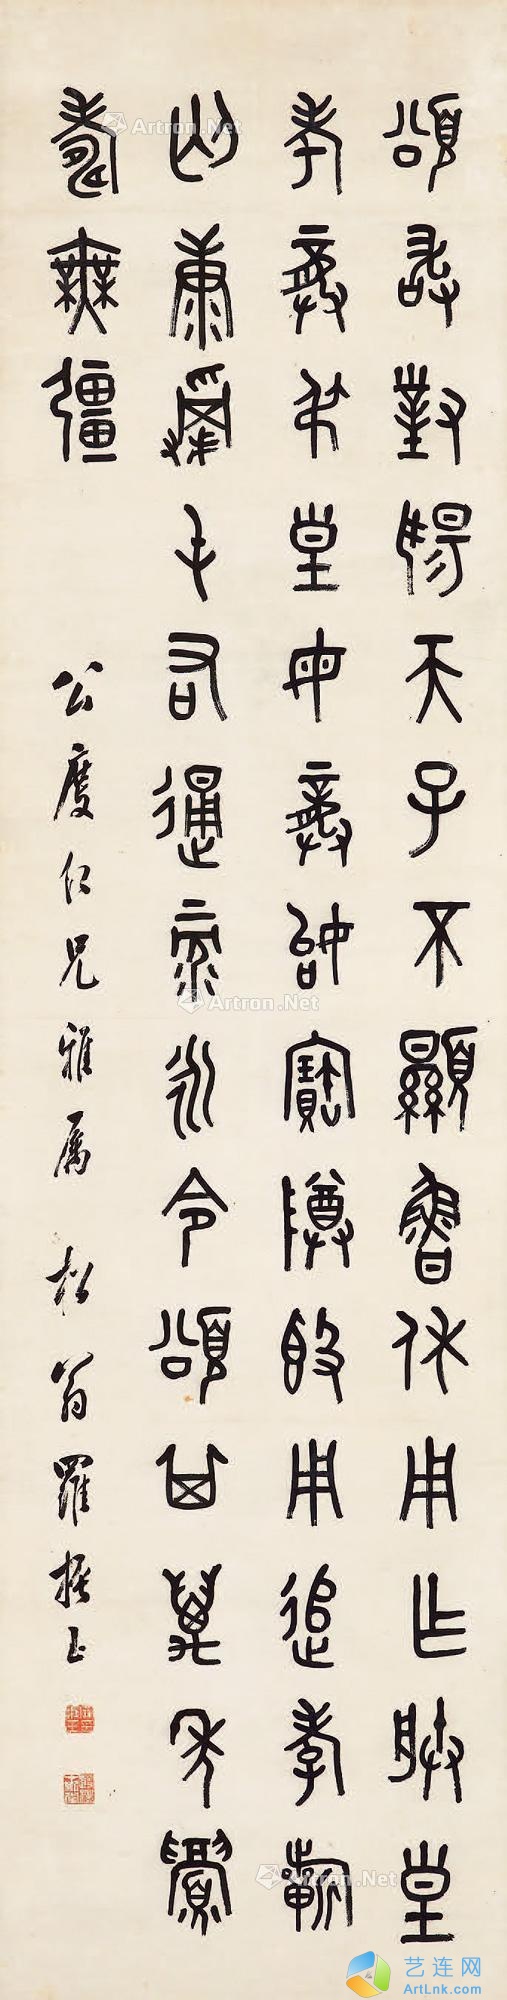 頌敢對揚天子不顯魯休用乍朕皇
考龏弔皇母龏始寶尊𣪘用追孝祈
匄康屯右通彔永令頌其萬年眉
壽無疆
公度仁兄雅屬 松翁羅振玉
Artron.Net
Artron.Net
Artron.Net
艺连网
ArtLink.com